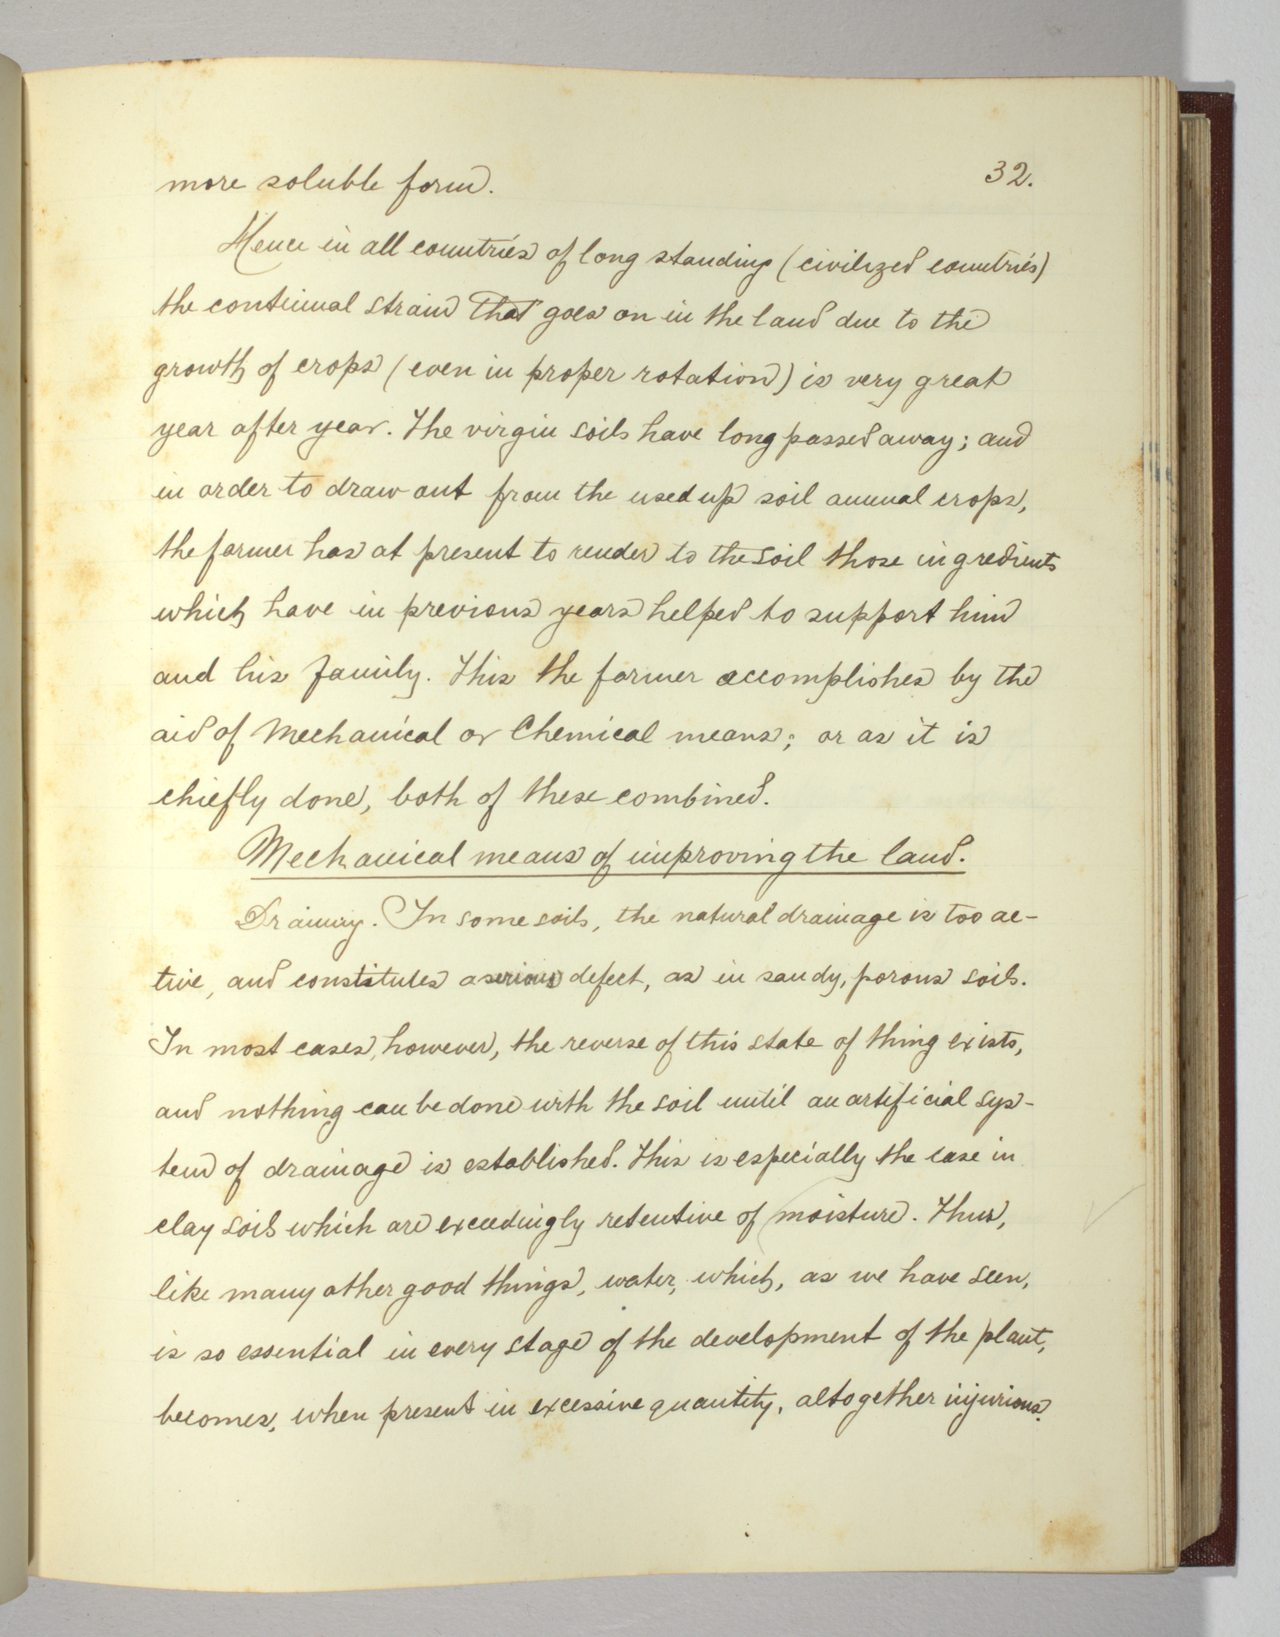 32.
more soluble form.
Hence in all countries of long standing (civilized countries)
the continual strain that goes on in the land due to the
growth of crops (even in proper rotation) is very great
year after year. The virgin soils have long passed away; and
in order to draw out from the used up soil annual crops,
the farmer has at present to render to the soil those ingredients
which have in previous years helped to support him
and his family. This the farmer accomplishes by the
aid of Mechanical or Chemical means; or as it is
chiefly done, both of these combined.
Mechanical means of improving the land.
Draining. In some soils, the natural drainage is too ac-
tive, and constitutes a serious defect, as in sandy, porous soils.
In most cases, however, the reverse of this state of thing exists,
and nothing can be done with the soil until an artificial sys-
tem of drainage is established. This is especially the case in
clay soils which are exceedingly retentive of moisture. Thus,
like many other good things, water, which, as we have seen,
is so essential in every stage of the development of the plant,
becomes, when present in excessive quantity, altogether injurious.